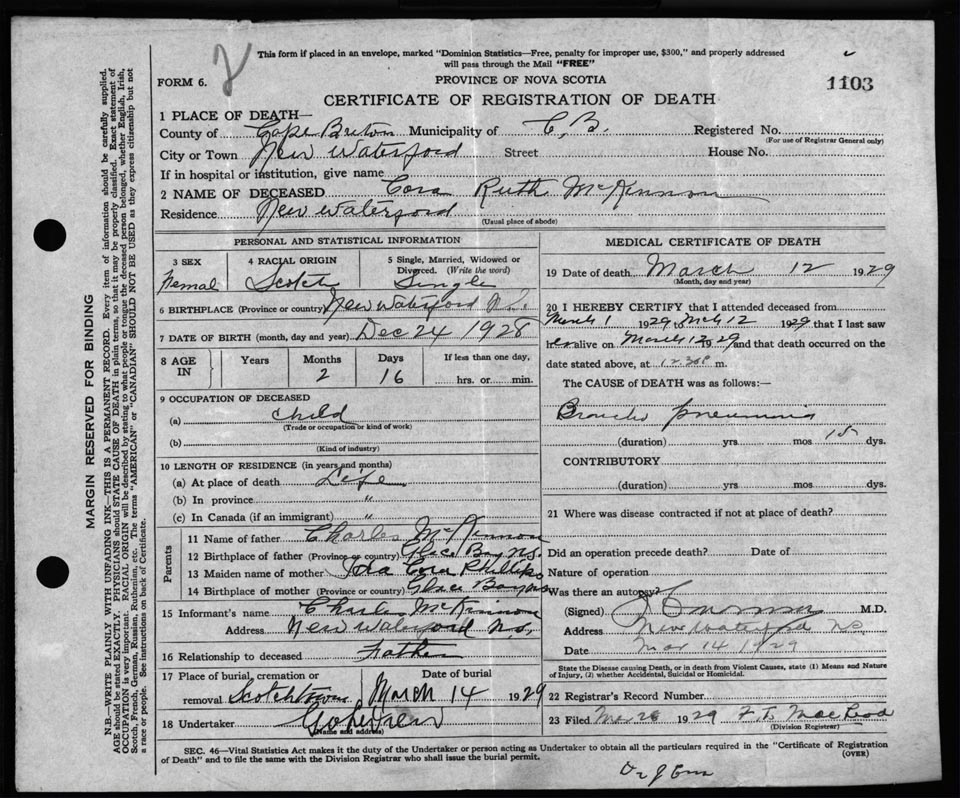 This form if placed in an envelope, marked "Dominion Statistics—Free, penalty for improper use, $300," and properly addressed
will pass through the Mail "FREE"
2
FORM 6.
PROVINCE OF NOVA SCOTIA
1103
CERTIFICATE OF REGISTRATION OF DEATH
1 PLACE OF DEATH—
County of Cape Breton Municipality of C. B. Registered No.
(For use of Registrar General only)
City or Town New Waterford Street House No.
If in hospital or institution, give name
2 NAME OF DECEASED Cora Ruth McKinnon
Residence New Waterford
(Usual place of abode)
PERSONAL AND STATISTICAL INFORMATION
3 SEX 4 RACIAL ORIGIN 5 Single, Married, Widowed or Divorced. (Write the word)
Femal Scotch Single
6 BIRTHPLACE (Province or country) New Waterford N.S.
7 DATE OF BIRTH (month, day and year) Dec 24 1928
8 AGE IN Years Months Days If less than one day,
2 16 hrs. or min.
9 OCCUPATION OF DECEASED
(a) Child
(Trade or occupation or kind of work)
(b)
(Kind of industry)
10 LENGTH OF RESIDENCE (in years and months)
(a) At place of death Life
(b) In province "
(c) In Canada (if an immigrant) "
Parents
11 Name of father Charles McKinnon
12 Birthplace of father (Province or country) Glace Bay N.S.
13 Maiden name of mother Cora Phillips
14 Birthplace of mother (Province or country) Glace Bay N.S.
15 Informant's name Charles McKinnon
Address New Waterford N.S.
16 Relationship to deceased Father
17 Place of burial, cremation or removal Date of burial
Scotchtown March 14 1929
18 Undertaker
(Name and address)
MEDICAL CERTIFICATE OF DEATH
19 Date of death March 12 1929
(Month, day and year)
20 I HEREBY CERTIFY that I attended deceased from
March 1 1929 to Mch 12 1929 that I last saw
her alive on March 12 1929 and that death occurred on the
date stated above, at 12.30 P m.
The CAUSE of DEATH was as follows:—
Broncho pneumonia
(duration) yrs. mos dys.
CONTRIBUTORY
(duration) yrs. mos. dys.
21 Where was disease contracted if not at place of death?
Did an operation precede death? Date of
Nature of operation
Was there an autopsy?
(Signed) M.D.
Address New Waterford N.S.
Date Mar 14 1929
State the Disease causing Death, or in death from Violent Causes, state (1) Means and Nature
of Injury, (2) whether Accidental, Suicidal or Homicidal.
22 Registrar's Record Number
23 Filed Mar 26 1929 MacLeod
(Division Registrar)
SEC. 46—Vital Statistics Act makes it the duty of the Undertaker or person acting as Undertaker to obtain all the particulars required in the "Certificate of Registration
of Death" and to file the same with the Division Registrar who shall issue the burial permit.
(OVER)
MARGIN RESERVED FOR BINDING
N.B.—WRITE PLAINLY WITH UNFADING INK—THIS IS A PERMANENT RECORD. Every item of information should be carefully supplied.
AGE should be stated EXACTLY. PHYSICIANS should STATE CAUSE OF DEATH in plain terms, so that it may be properly classified. Exact statement of
OCCUPATION is very important. RACIAL ORIGIN will be described by stating to what people or tongue the deceased person belonged, whether English, Irish,
Scotch, French, German, Russian, Ruthenian, etc. The terms "AMERICAN" or "CANADIAN" SHOULD NOT BE USED as they express citizenship but not
a race or people. See instructions on back of Certificate.